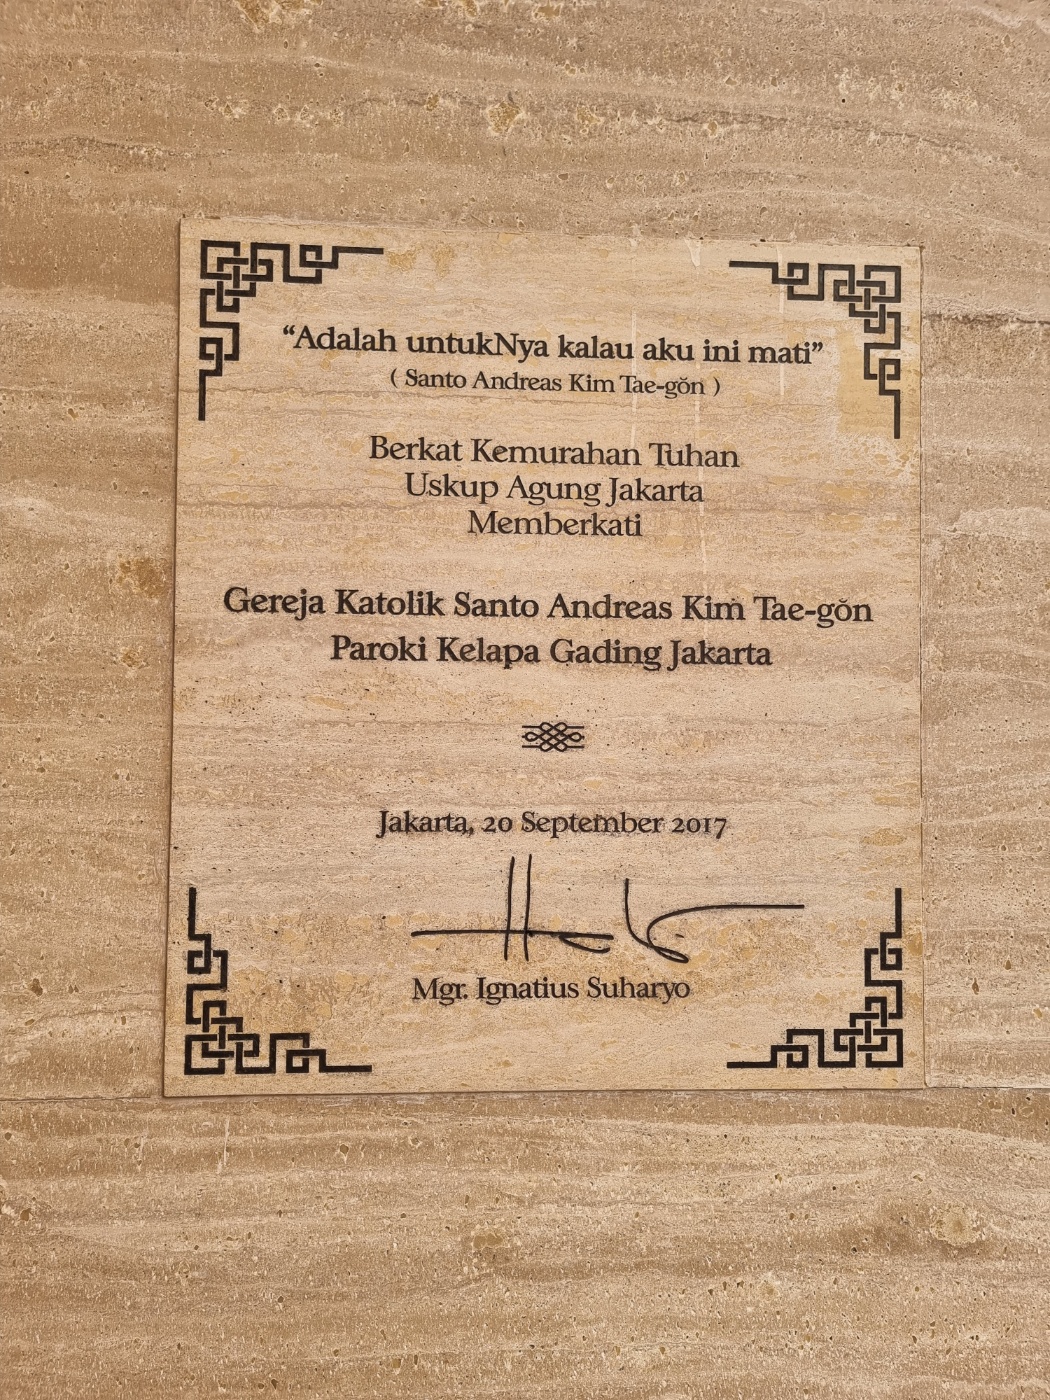 “Adalah untukNya kalau aku ini mati”
( Santo Andreas Kim Tae-gŏn )
Berkat Kemurahan Tuhan
Uskup Agung Jakarta
Memberkati
Gereja Katolik Santo Andreas Kim Tae-gŏn
Paroki Kelapa Gading Jakarta
Jakarta, 20 September 2017
Mgr. Ignatius Suharyo